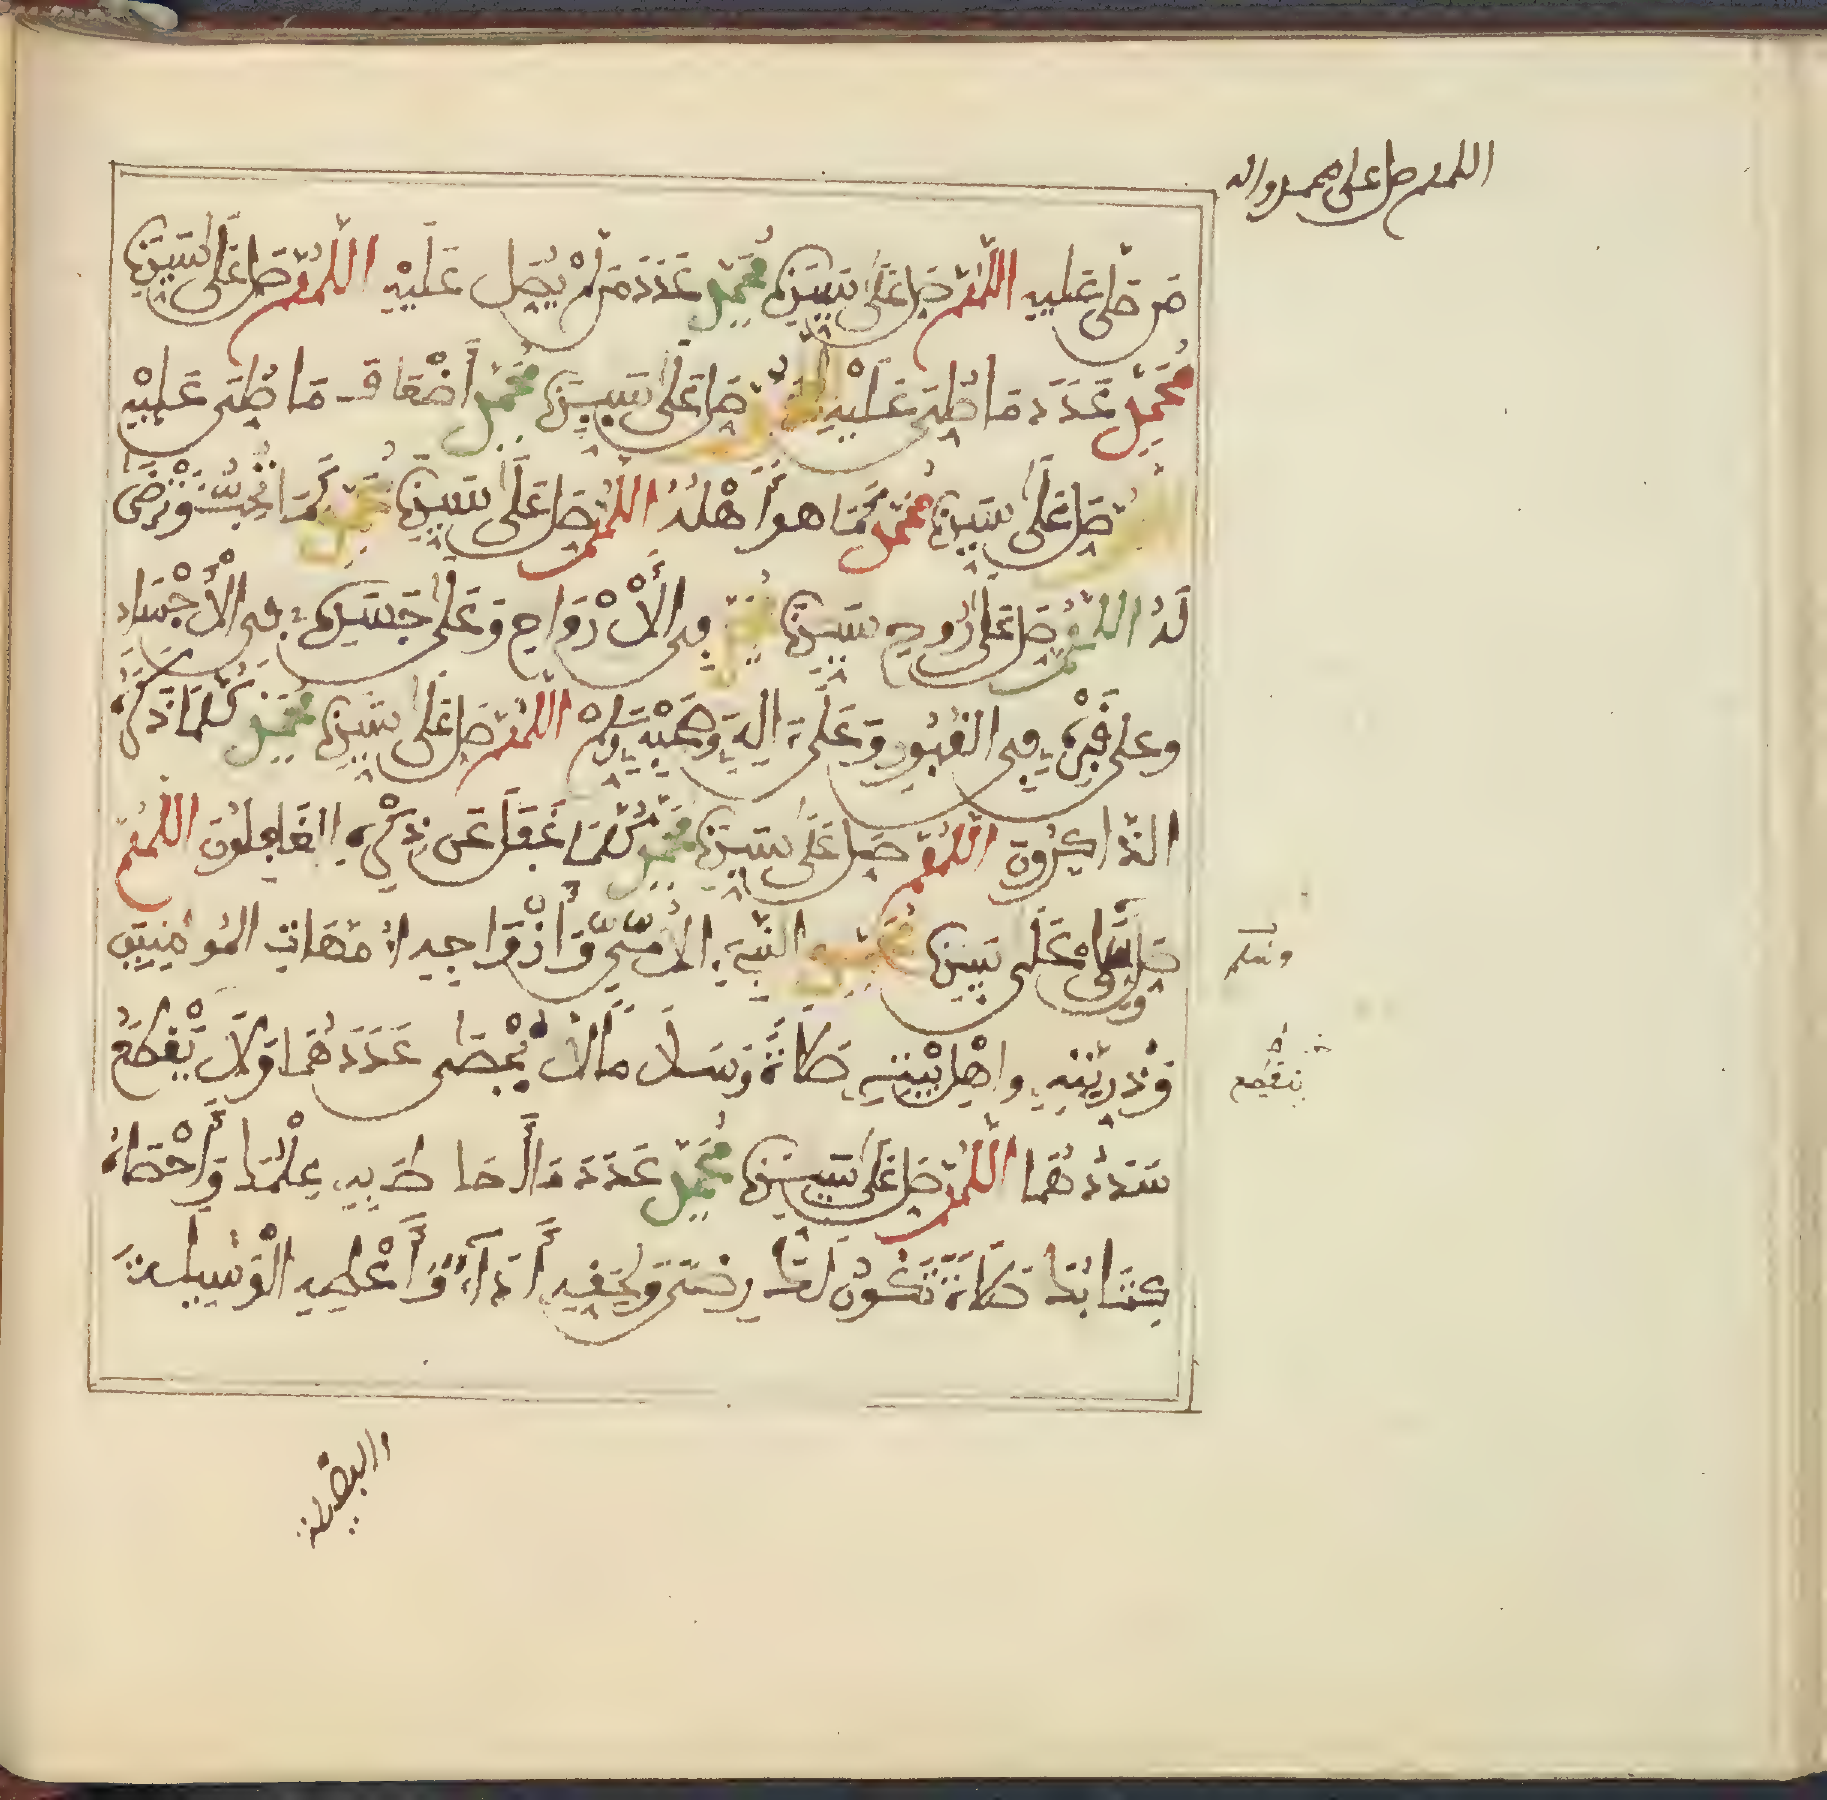 اللهم صل على محمد واله
مَن صَلَّى عَلَيهِ اللَّهُمَّ صَلِّ عَلَى سَيِّدِنَا مُحَمَّدٍ عَدَدَ مَن لَّمْ يُصَلِّ عَلَيْهِ اللَّهُمَّ صَلِّ عَلَى سَيِّدِنَا
مُحَمَّدٍ عَدَدَ مَا صُلِّيَ عَلَيْهِ اللَّهُمَّ صَلِّ عَلَى سَيِّدِنَا مُحَمَّدٍ أَضْعَافَ مَا صُلِّيَ عَلَيْهِ
اللَّهُمَّ صَلِّ عَلَى سَيِّدِنَا مُحَمَّدٍ كَمَا هو أَهْلُهُ اللَّهُمَّ صَلِّ عَلَى سَيِّدِنَا مُحَمَّدٍ كَمَا تُحِبُّ وَتَرْضَى
لَهُ اللَّهُمَّ صَلِّ عَلَى رُوحِ سَيِّدِنَا مُحَمَّدٍ فِي الْأَرْوَاحِ وَعَلَى جَسَدِهِ فِي الْأَجْسَادِ
وعلى قَبْرِهِ فِي القُبُورِ وَعَلَى ءَالِهِ وَصَحْبِهِ وَسَلِّمْ اللَّهُمَّ صَلِّ عَلَى سَيِّدِنَا مُحَمَّدٍ كُلَّمَا ذَكَرَهُ
الذَّاكِرُونَ اللَّهُمَّ صَلِّ عَلَى سَيِّدِنَا مُحَمَّدٍ كُلَّمَا غَفَلَ عَن ذِكْرِهِ الغَافِلُونَ اللَّهُمَّ
صَلِّ وَسَلِّمْ عَلَى سَيِّدِنَا مُحَمَّدٍ النَّبِيِّ الأُمِّيِّ وَأَزْوَاجِهِ أُمَّهَاتِ المُومِنِينَ
وسلم
وَذُرِّيَّتِهِ واهْلِ بَيْتِهِ صَلَاةً وَسَلَامًا لَا يُحْصَى عَدَدُهُمَا وَلَا يُقْطَعُ
ينقطع
مَدَدُهُمَا اللَّهُمَّ صَلِّ عَلَى سَيِّدِنَا مُحَمَّدٍ عَدَدَ مَا أَحَاطَ بِهِ عِلْمُكَ وَأَحْصَاهُ
كِتَابُكَ صَلَاةً تَكُونُ لَكَ رِضًى وَلِحَقِّهِ أَدَآءً وَأَعْطِهِ الْوَسِيلَةَ
والفضيلة